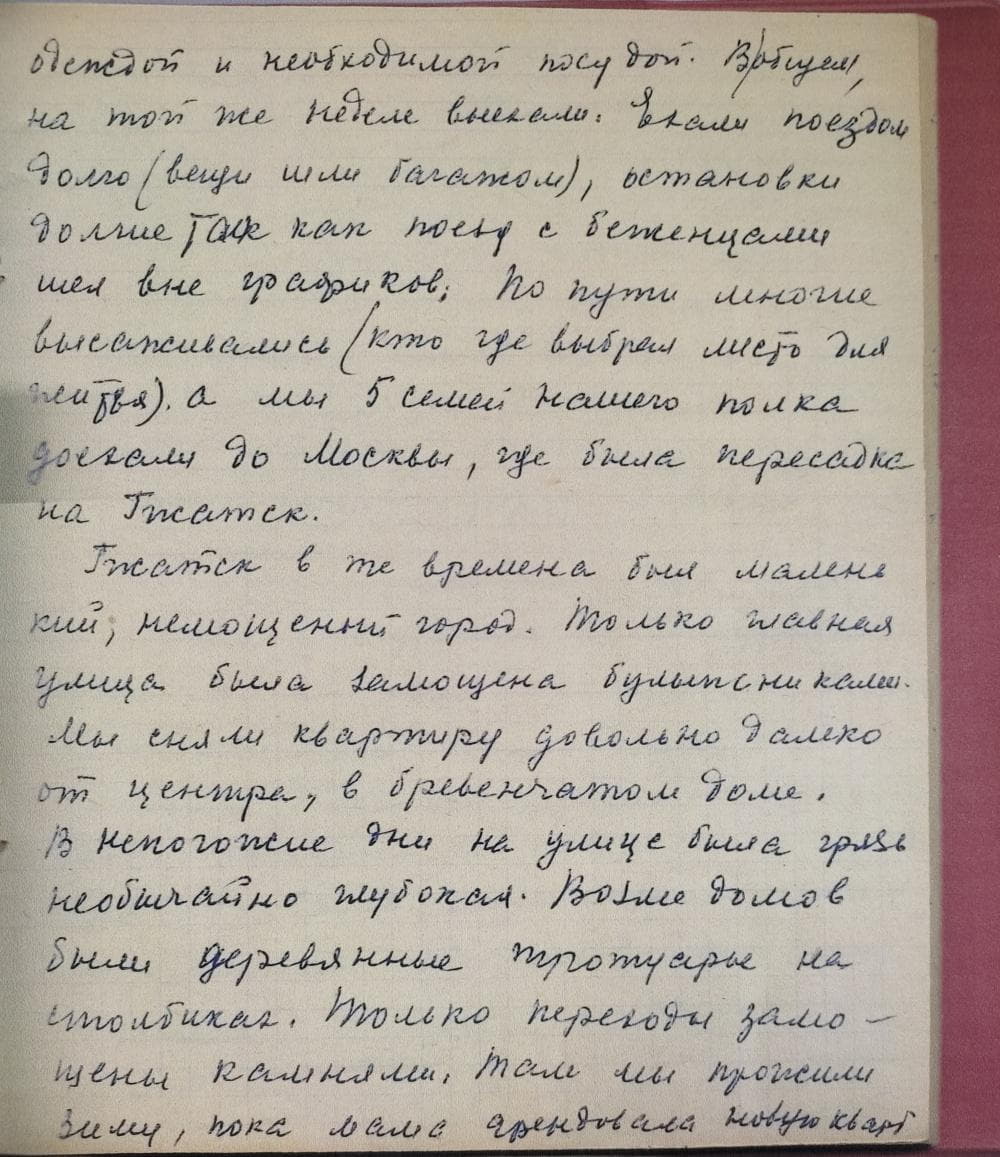 одеждой и необходимой посудой. В/общем,
на той же неделе выехали. Ехали поездом
долго (вещи шли багажом), остановки
долгие так как поезд с беженцами
шел вне графиков. По пути многие
высаживались (кто где выбрал место для
житья). а мы 5 семей нашего полка
доехали до Москвы, где была пересадка
на Гжатск.
Гжатск в те времена был малень
кий, немощеный город. Только главная
улица была замощена булыжниками.
Мы сняли квартиру довольно далеко
от центра, в бревенчатом доме.
В непогожие дни на улице была грязь
необычайно глубокая. Возле домов
были деревянные тротуары на
столбиках. Только переходы замо-
щены камнями. Там мы прожили
зиму, пока мама арендовала новую кварт